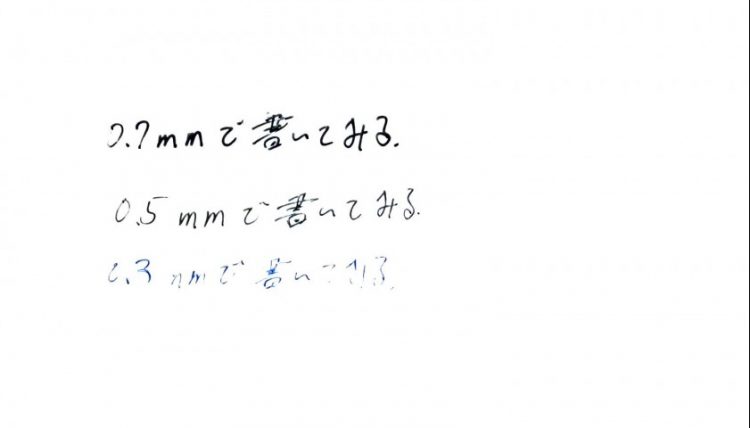 0.7mmで書いてみる.
0.5mmで書いてみる.
0.3mmで書いてみる.